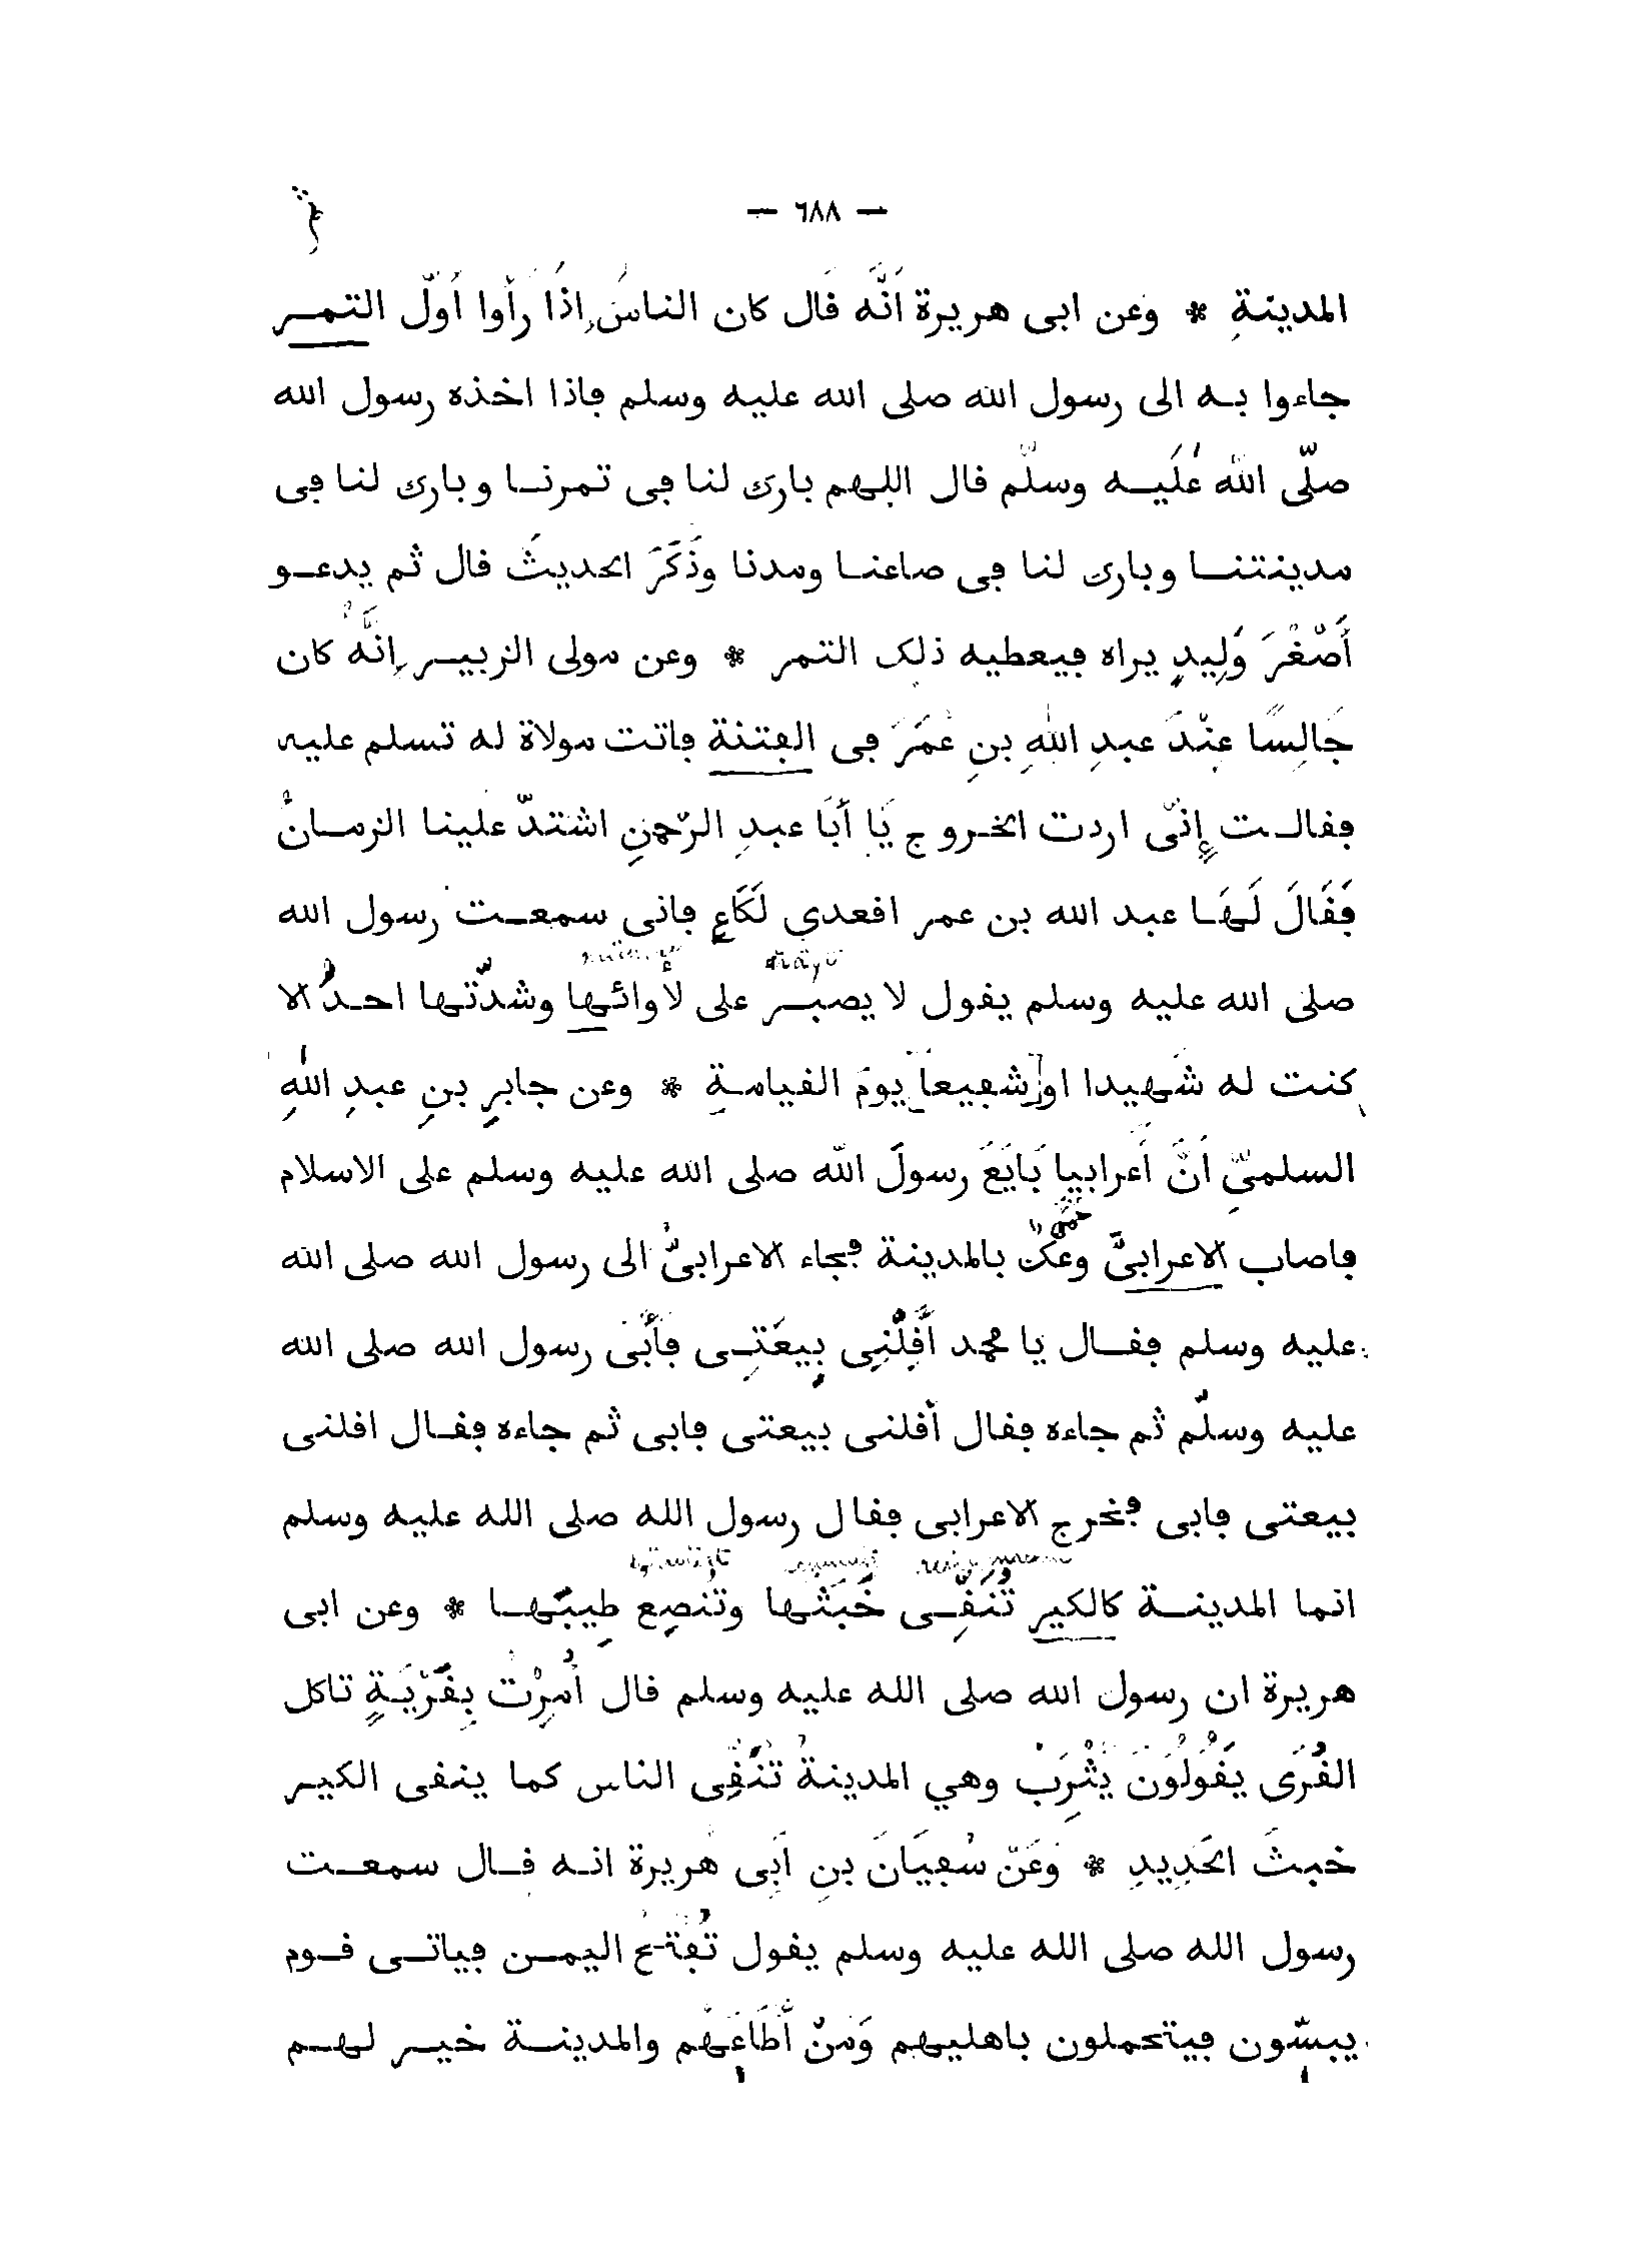 — ٦٨٨ —
المدينةِ * وعن ابى هريرة انّه قال كان الناسُ اِذَا رأوا أوّل التمر
جاءوا به الى رسول الله صلى الله عليه وسلم فاذا اخذه رسول الله
صلّى الله عَلَيه وسلّم قال اللهم بارك لنا فى تمرنا وبارك لنا فى
مدينتنا وبارك لنا فى صاعنا ومدنا وذَكَرَ الحديثَ قال ثم يدعو
أَصْغَرَ وَلِيدٍ يراه فيعطيه ذلك التمر * وعن مولى الزبير اِنَّهُ كان
جَالِسًا عِنْدَ عبدِ اللهِ بنِ عُمَرَ فى الفتنة فاتت مولاة له تسلم عليه
فقالت إِنّى اردت الخروج يَا أَبَا عبدِ الرّحمنِ اشتدّ علينا الزمانُ
فَقَالَ لَهَا عبد الله بن عمر اقعدي لَكَاعِ فانى سمعت رسول الله
صلى الله عليه وسلم يقول لا يصبر على لأوائها وشدّتها احدٌ الا
كنت له شَهيدا او شفيعا يومَ القيامةِ * وعن جابرِ بنِ عبدِ اللهِ
السلمىِّ انّ أعرابيا بَايَعَ رسولَ الله صلى الله عليه وسلم على الاسلام
فاصاب الاعرابىَّ وعكٌ بالمدينة فجاء الاعرابىُّ الى رسول الله صلى الله
عليه وسلم فقال يا محمد أَقِلْنِى بِيعَتِى فأبَى رسول الله صلى الله
عليه وسلّم ثم جاءه فقال أقلنى بيعتى فابى ثم جاءه فقال اقلنى
بيعتى فابى فخرج الاعرابى فقال رسول الله صلى الله عليه وسلم
انما المدينة كالكير تَنْفِى خَبَثها وتُنصِع طِيبَها * وعن ابى
هريرة ان رسول الله صلى الله عليه وسلم قال أُمِرْتُ بِقَرْيَةٍ تاكل
القُرَى يَقُولُونَ يَثْرِبُ وهي المدينةُ تَنْفِى الناس كما ينفى الكير
خبثَ الحَدِيدِ * وَعَنْ سُفيَانَ بنِ أَبِى هُريرة انه قال سمعت
رسول الله صلى الله عليه وسلم يقول تُفتح اليمن فياتى قوم
يبسّون فيتحملون باهليهم وَمَنْ أَطَاعَهُم والمدينة خير لهم